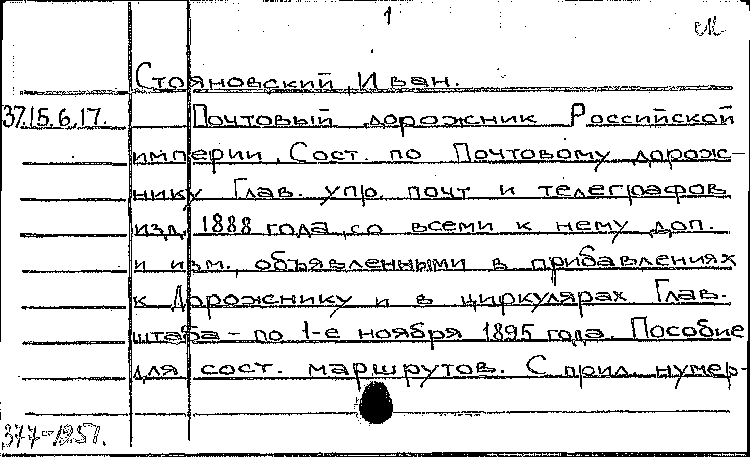 1
см
Стояновский, Иван.
37.15.6.17. Почтовый дорожник Российской
империи. Сост. по Почтовому дорож-
нику Глав. упр. почт и телеграфов
изд. 1888 года, со всеми к нему доп.
и изм., объявленными в прибавлениях
к Дорожнику и в циркулярах Глав.
штаба - по 1-е ноября 1895 года. Пособие
для сост. маршрутов. С прил. нумер-
377-1951.